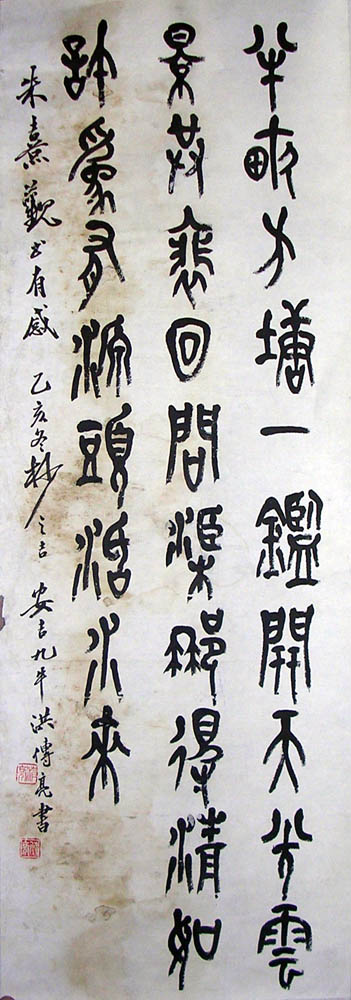 半畝方塘一鑑開天光雲
景共裵回問渠那得清如
許爲有源頭活水來
朱熹觀書有感 乙亥冬杪之吉 安吉九平洪傳亮書